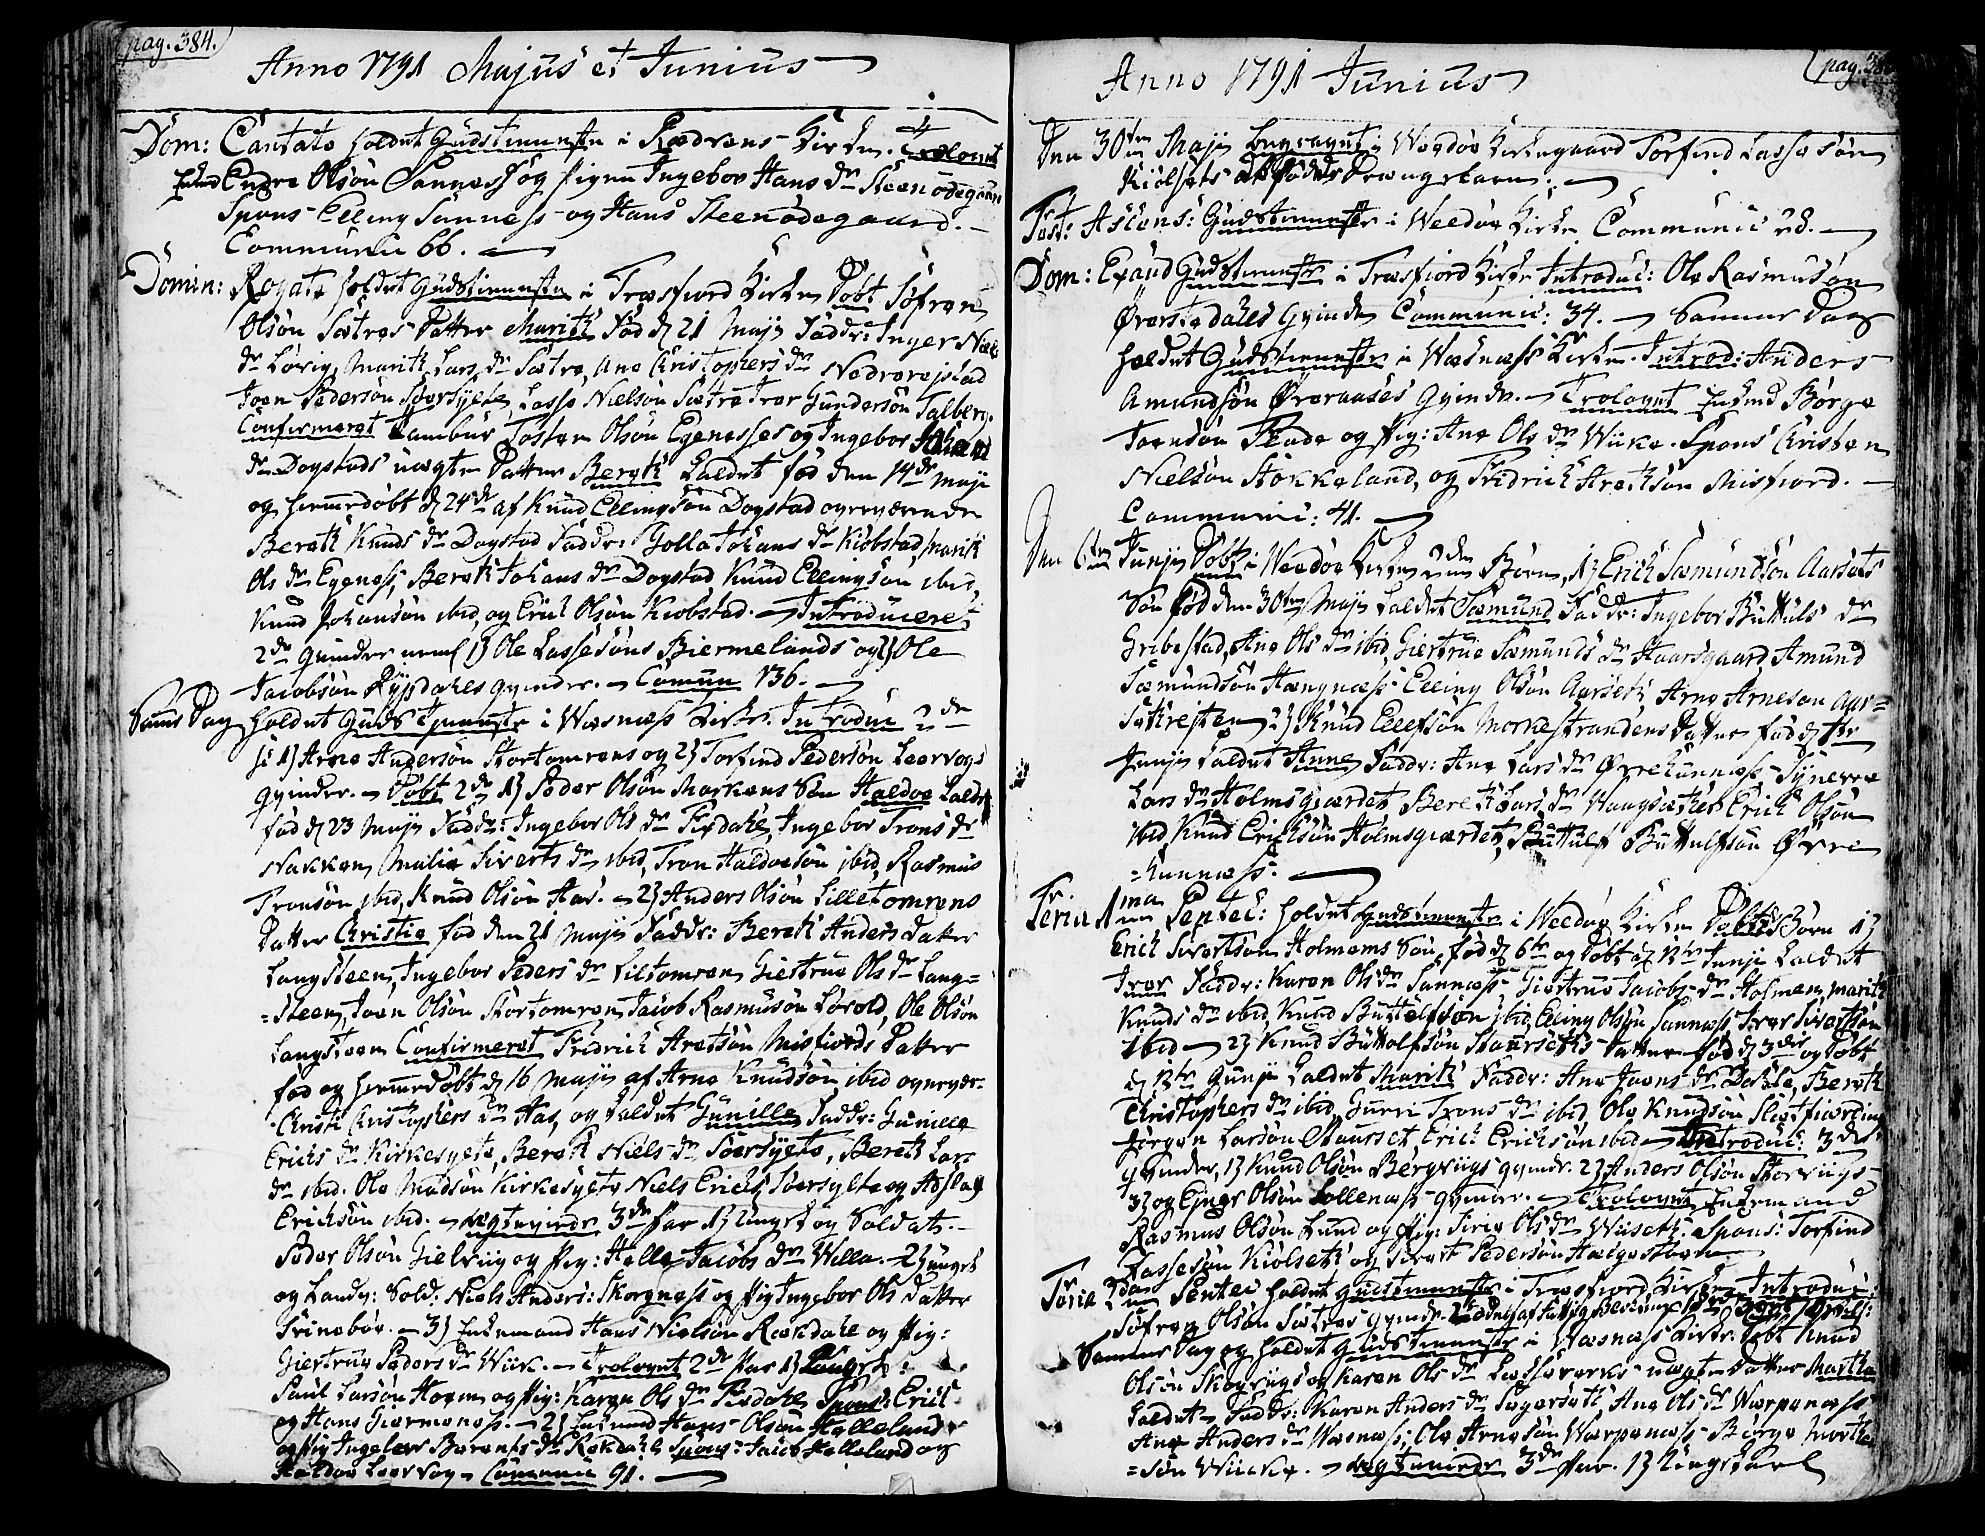 pag. 384.
Anno 1791 Majus et Junius
Dom: Cantate holdet Gudstienneste i Rødvens Kirke. Trolovet
Enkemd Endre Olsøn Sannes og Pigen Ingebor Hans dr Steenødegaard
Spons Elling Sannes og Hans Steenødegaard.
Communic 66.
Domin: Rogate holdet Gudstienneste i Træsfiord Kirke Døbt Søfren
Olsøn Sætres Datter Marith Fød d 21 Maji Faddr: Inger Niels
dr Løvig, Marith Lars dr Sætre, Ane Christophers dr Nedrevestad
Joen Pedersøn Soersylte, Lasse Nielsøn Sætre Iver Gundersøn Talberg.
Confirmeret Tambur Tosten Olsøn Egenesses og Ingebor Johans
dr Dogstads uægte Datter Bereth Kaldet fød den 14de Maji
og hiemedøbt d 24de af Knud Ellingsøn Dogstad ognerværende
Bereth Knuds dr Dogstad Faddr: Golla Johans dr Kiøbstad, Marith
Ols dr Egeness, Bereth Johans dr Dogstad Knud Ellingsøn ibid,
Knud Johansøn ibid, og Erich Olsøn Kiobstad. Introduceret
2de Qvinder neml 1) Ole Lassesøns Biermelands og 2) Ole
Jacobsøn Rypdales qvinder. Comun 136.
Samme Dag holdet Guds Tienneste i Wæsnæss Kirke. Introduc 2de
1) Arne Andersøn Stortomrens og 2) Torfind Pedersøn Leervogs
Qvinder. Døbt 2de 1) Peder Olsøn Markens Søn Haldor Kaldet
fød d 23 Maji Faddr: Ingebor Ols dr Fixdale, Ingebor Trons dr
Nakken, Malie Siverts dr ibid, Tron Haldorsøn ibid, Rasmus
Tronsøn ibid, Knud Olsøn Aas. 2) Anders Olsøn Lilletomrens
Datter Christie fød den 21 Maji Faddr: Bereth Anders Datter
Langsteen, Ingebor Peders dr Liltomren Giertrue Ols dr Lang=
=steen, Joen Olsøn Stortomren, Jacob Rasmusøn Lorold, Ole Olsøn
Langsteen Confirmeret Fridrich Aretsøn Misfiords Datter
fød og hiemedøbt d 16 Maji af Arne Knudsøn ibid ognervær=
Christi Christophers dr Aas, og Kaldet Gunille Faddr: Gunille
Erichs dr Kirkesylte, Bereth Niels dr Soersylte, Bereth Lars
dr ibid. Ole Madsøn Kirkesylte Niels Erichs Soersylte og Asslag
Erichsøn ibid. Ægteviede 3de Par 1) Ungk og Soldat
Peder Olsøn Gielvig og Pig: Helle Jacobs dr Wille. 2) ungk
og Landv: Sold: Niels Anders: Skorgness og Pig Ingebor Ols Datter
Trinebør. 3) Enkemand Hans Nielsøn Rekdale og Pig:
Giertrug Peders dr Wiik. Trolovet 2de Par 1) Ungk:
Paul Larsøn Hoem og Pig: Karen Ols dr Fixdale Spons: Erich
og Hans Giermeness. 2) Enkemd Hans Olsøn Helleland
og Pig Ingebor Berents dr Rekdale Spons: Jacob Helleland og
Haldor Leervog. Comunic 91.
pag. 385
Anno 1791 Junius
Den 30te Maji Begravet i Weedøe Kirkegaard Torfind Lassesøn
Kiølseths dødfødde Drengebarn.
Fest: Ascens: Gudstienneste i Weedøe Kirke Communic 28.
Dom: Exaud Gudstienneste i Træsfiord Kirke Introduc: Ole Rasmusøn
Øverstedales Qvinde Communic: 34. Samme Dag
holdet Gudstienneste i Wæsnæss Kirke. Introd: Anders
Amundsøn Øveraases Qvinde. Trolovet Enkemd Børge
Joensøn Flade og Pig: Ane Ols dr Wiike. Spons Christen
Nielsøn Stokkeland, og Fridrich Aretsøn Misfiord.
Communic: 41.
Den 6te Junji Døbt i Weedøe Kirke 2de Børn, 1) Erich Sæmundsøn Aarsets
Søn fød den 30te Maji Kaldet Sæmund Faddr: Ingebor Buttuls dr
Gribestad, Ane Ols dr ibid, Giertrue Sæmunds dr Haarsgaard Amund
Sæmundsøn Hængnæss Elling Olsøn Aarseth, Arne Arnesøn Aar=
=sethreiten 2) Knud Ellefsøn Morkestrandens Datter fød d 1te
Junji Kaldet Anne Faddr: Ane Lars dr Øvrekunnæss, Synneve
Lars dr Holmsgiærdet Bereth Lars dr Vaagsæther Erich Olsøn
ibid Knud Erichsøn Holmsgiærdet, Buttulf Buttulfsøn Øvre
=kunness.
Feria 1ma Pentec: holdet Gudstienneste i Weedøe Kirke Døbt 2de Børn 1)
Erich Sivertsøn Holmems Søn, fød d 6te og døbt d 12te Junji Kaldet
Iver Faddr: Karen Ols dr Sannæss Giertrue Jacobs dr Holmem, Marith
Knuds dr ibid, Knud Buttulfsøn ibid, Elling Olsøn Sannæss, Iver Sivertsøn
ibid 2) Knud Buttolfsøn Staurseths Datter fød d 3die og døbt
d 12te Junji Kaldet Marith Faddr: Ane Joens dr Dahle, Bereth
Christophers dr ibid, Gurri Trons dr ibid Ole Knudsøn Sletfierding
Jørgen Larsøn Staurset Erich Erichsøn ibid Introduc: 3de
Qvinder, 1) Knud Olsøn Bergviigs Qvinde. 2) Anders Olsøn Storviigs
3) og Ejner Olsøn Sollenæss Qvinder. Trolovet Enkemand
Rasmus Olsøn Lund og Pig: Sirie Ols dr Wiiseth. Spons: Torfind
Lassesøn Kiølseth og Sivert Pedersøn Hælgestøen
Feria 2da Pentec holdet Gudstienneste i Træsfiord Kirke Introduc:
Søfren Olsøn Sætres Qvinde.
Samme Dag og holdet Gudstienneste i Wæsnæss Kirke. Døbt Knud
Olsøn Skeviigs og Karen Ols dr uægte Datter Marthe
Kaldet Faddr: Karen Anders dr Ane Ols dr Wærpenæss
Ane Anders dr Wæsnæss, Ole Arnesøn Wærpenæss Børge Morten
=søn Wiike. Ægteviede 3de Par. 1) Ungkarl